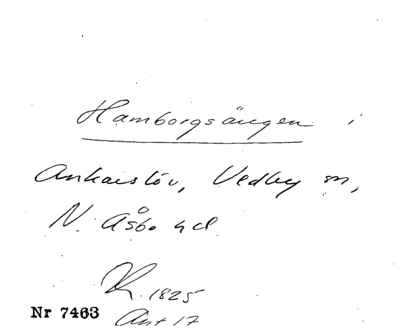 Hamborgsängen i
Ankarslöv, Vedby sn,
N. Åsbo hd
K. 1825
Nr 7463
Ant 17